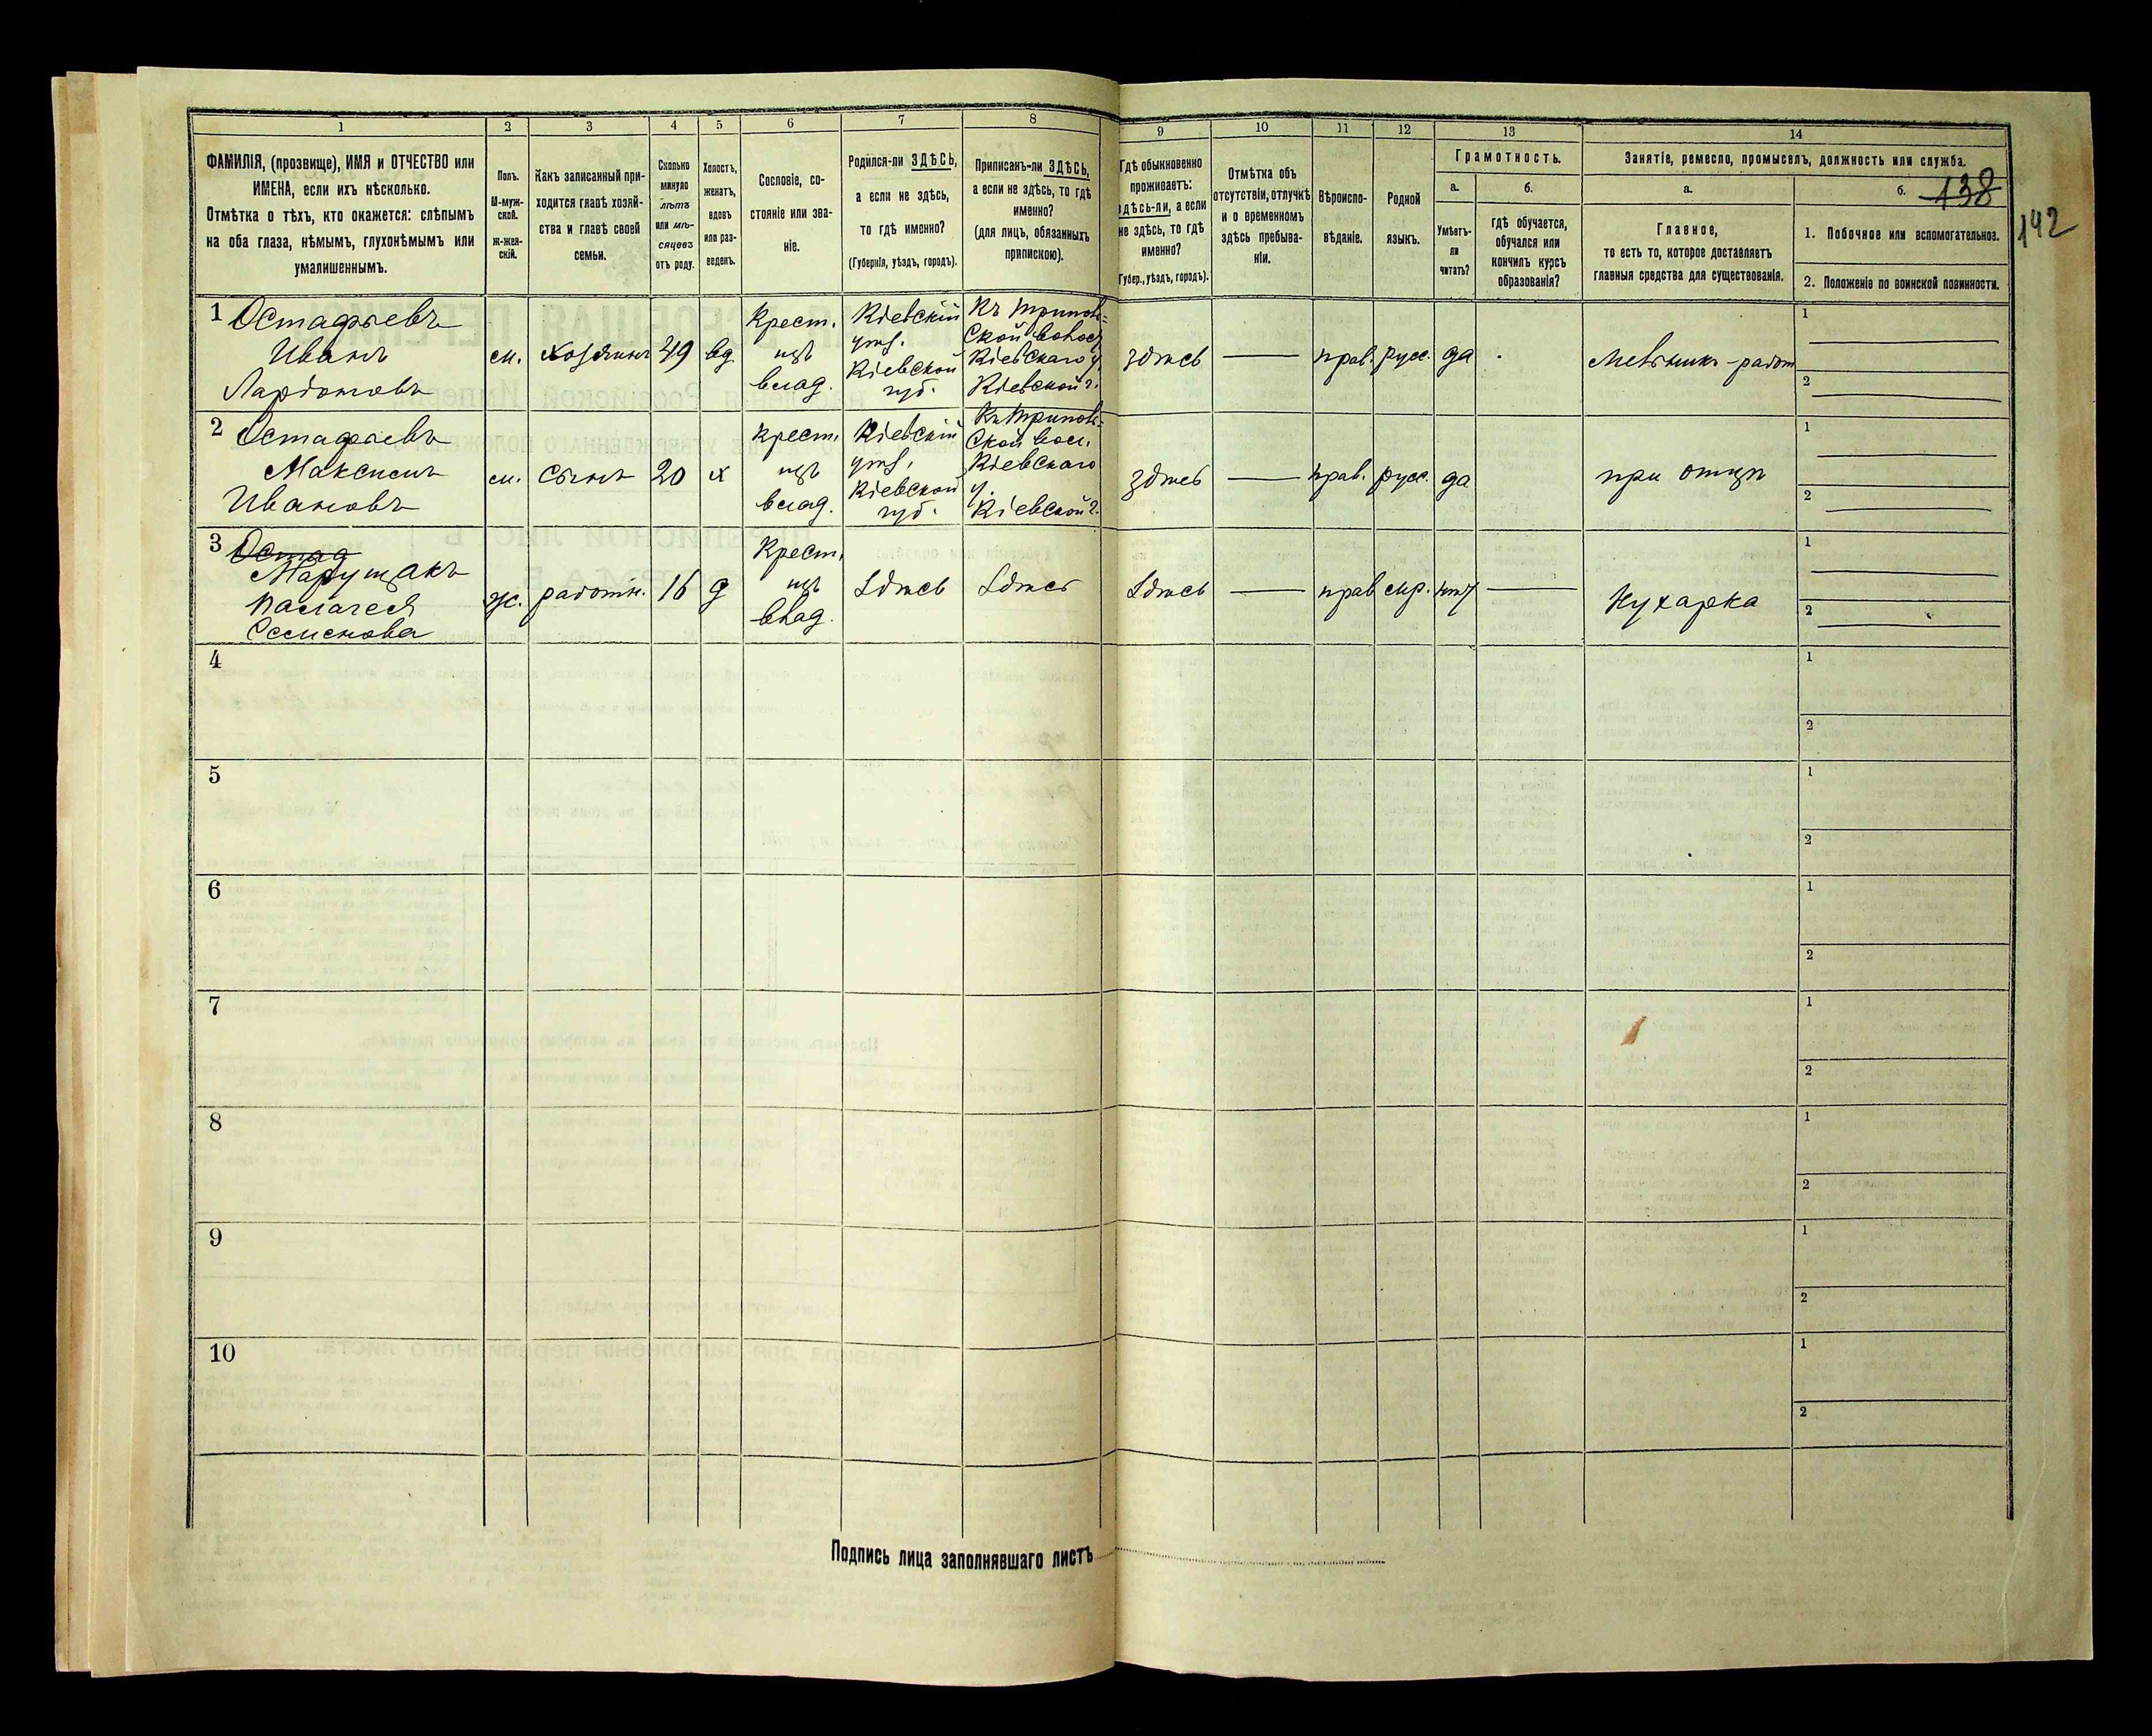 1 2 3 4 5 6 7 8 9 10 11 12 13 14
ФАМИЛІЯ, (прозвище), ИМЯ и ОТЧЕСТВО или
ИМЕНА, если ихъ нѣсколько.
Отмѣтка о тѣхъ, кто окажется: слѣпымъ
на оба глаза, нѣмымъ, глухонѣмымъ или
умалишеннымъ.
Полъ.
М-муж-
ской.
Ж-жен-
скій.
Какъ записанный при-
ходится главѣ хозяй-
ства и главѣ своей
семьи.
Сколько
минуло
лѣтъ
или мѣ-
сяцевъ
отъ роду.
Холостъ,
женатъ,
вдовъ
или раз-
веденъ.
Сословіе, со-
стояніе или зва-
ніе.
Родился-ли ЗДѢСЬ,
а если не здѣсь,
то гдѣ именно?
(Губернія, уѣздъ, городъ).
Приписанъ-ли ЗДѢСЬ,
а если не здѣсь, то гдѣ
именно?
(для лицъ, обязанныхъ
припискою).
Гдѣ обыкновенно
проживаетъ:
здѣсь-ли, а если
не здѣсь, то гдѣ
именно?
(Губер., уѣздъ, городъ).
Отмѣтка объ
отсутствіи, отлучкѣ
и о временномъ
здѣсь пребыва-
ніи.
Вѣроиспо-
вѣданіе.
Родной
языкъ.
Грамотность.
а.
Умѣетъ-
ли
читать?
б.
гдѣ обучается,
обучался или
кончилъ курсъ
образованія?
Занятіе, ремесло, промыселъ, должность или служба.
а.
Главное,
то есть то, которое доставляетъ
главныя средства для существованія.
б.
138
142
1. Побочное или вспомогательное.
2. Положеніе по воинской повинности.
1 Остафьевъ
Иванъ
Ларіоновъ
м.
хозяинъ
49
вд
Крест.
изъ
влад.
Кіевскій
уѣз.
Кіевской
губ.
Къ Триполь=
ской волос
Кіевскаго у.
Кіевской г.
здѣсь
прав. русс. да
Мельникъ - работ
1
2
2 Остафьевъ
Максимъ
Ивановъ
м.
Сынъ
20
х
Крест.
изъ
влад.
Кіевскій
уѣз.
Кіевской
губ.
Къ Триполь=
ской вол.
Кіевскаго
у.
Кіевской г.
здѣсь
прав. русс. да
при отцѣ
1
2
3 Остаф
Марущакъ
Палагея
Семенова
ж.
работн.
16
д
Крест.
изъ
влад.
Здѣсь
Здѣсь
Здѣсь
прав мр. нѣт
Кухарка
1
2
4
1
2
5
1
2
6
1
2
7
1
2
8
1
2
9
1
2
10
1
2
Подпись лица заполнявшаго листъ